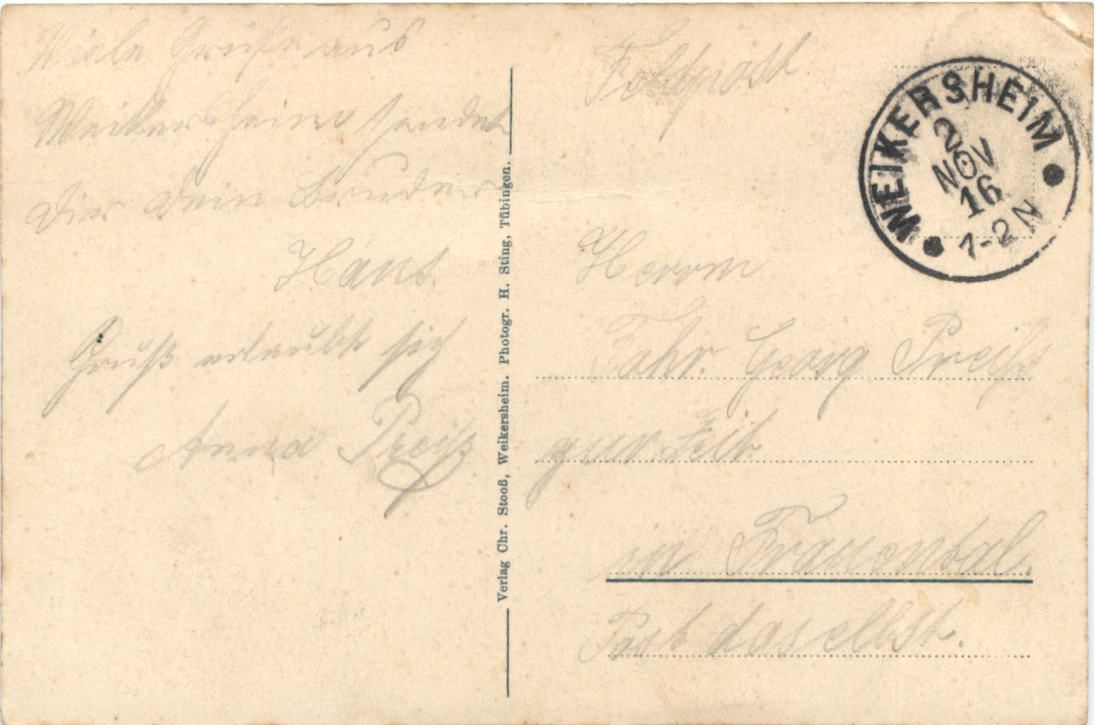 Viele Grüße aus
Weikersheim sendet
Dir Dein Bruder
Hans.
Gruß erlaubt sich
Anna Preiß
Verlag Chr. Stooß, Weikersheim. Photogr. H. Sting, Tübingen.
Feldpost
WEIKERSHEIM
2
NOV
16
1-2N
Herrn
Fahr. Georg Preiß
zur Zeit
in Frauental.
Post daselbst.